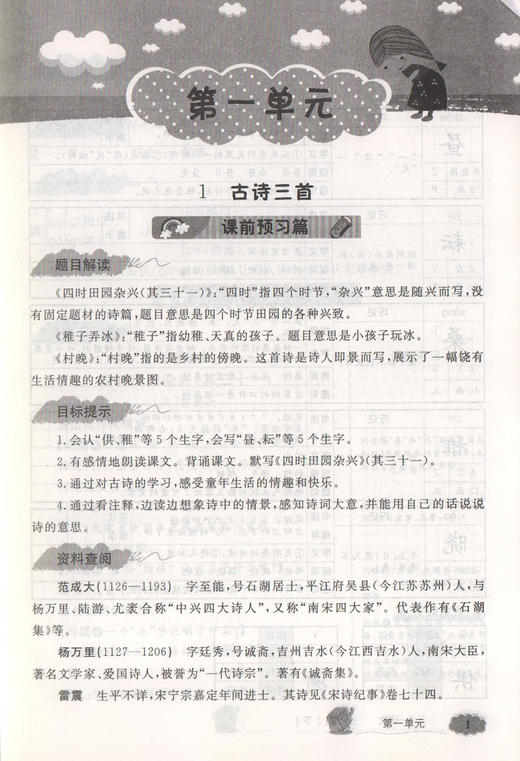 第一单元
1 古诗三首
课前预习篇
题目解读
《四时田园杂兴(其三十一)》:“四时”指四个时节,“杂兴”意思是随兴而写,没
有固定题材的诗篇,题目意思是四个时节田园的各种兴致。
《稚子弄冰》:“稚子”指幼稚、天真的孩子。题目意思是小孩子玩冰。
《村晚》:“村晚”指的是乡村的傍晚。这首诗是诗人即景而写,展示了一幅饶有
生活情趣的农村晚景图。
目标提示
1.会认“供、稚”等5个生字,会写“昼、耘”等5个生字。
2.有感情地朗读课文。背诵课文。默写《四时田园杂兴》(其三十一)。
3.通过对古诗的学习,感受童年生活的情趣和快乐。
4.通过看注释,边读边想象诗中的情景,感知诗词大意,并能用自己的话说说
诗的意思。
资料查阅
范成大(1126—1193) 字至能,号石湖居士,平江府吴县(今江苏苏州)人,与
杨万里、陆游、尤袤合称“中兴四大诗人”,又称“南宋四大家”。代表作有《石湖
集》等。
杨万里(1127—1206) 字廷秀,号诚斋,吉州吉水(今江西吉水)人,南宋大臣,
著名文学家、爱国诗人,被誉为“一代诗宗”。著有《诚斋集》。
雷震 生平不详,宋宁宗嘉定年间进士。其诗见《宋诗纪事》卷七十四。
第一单元 1